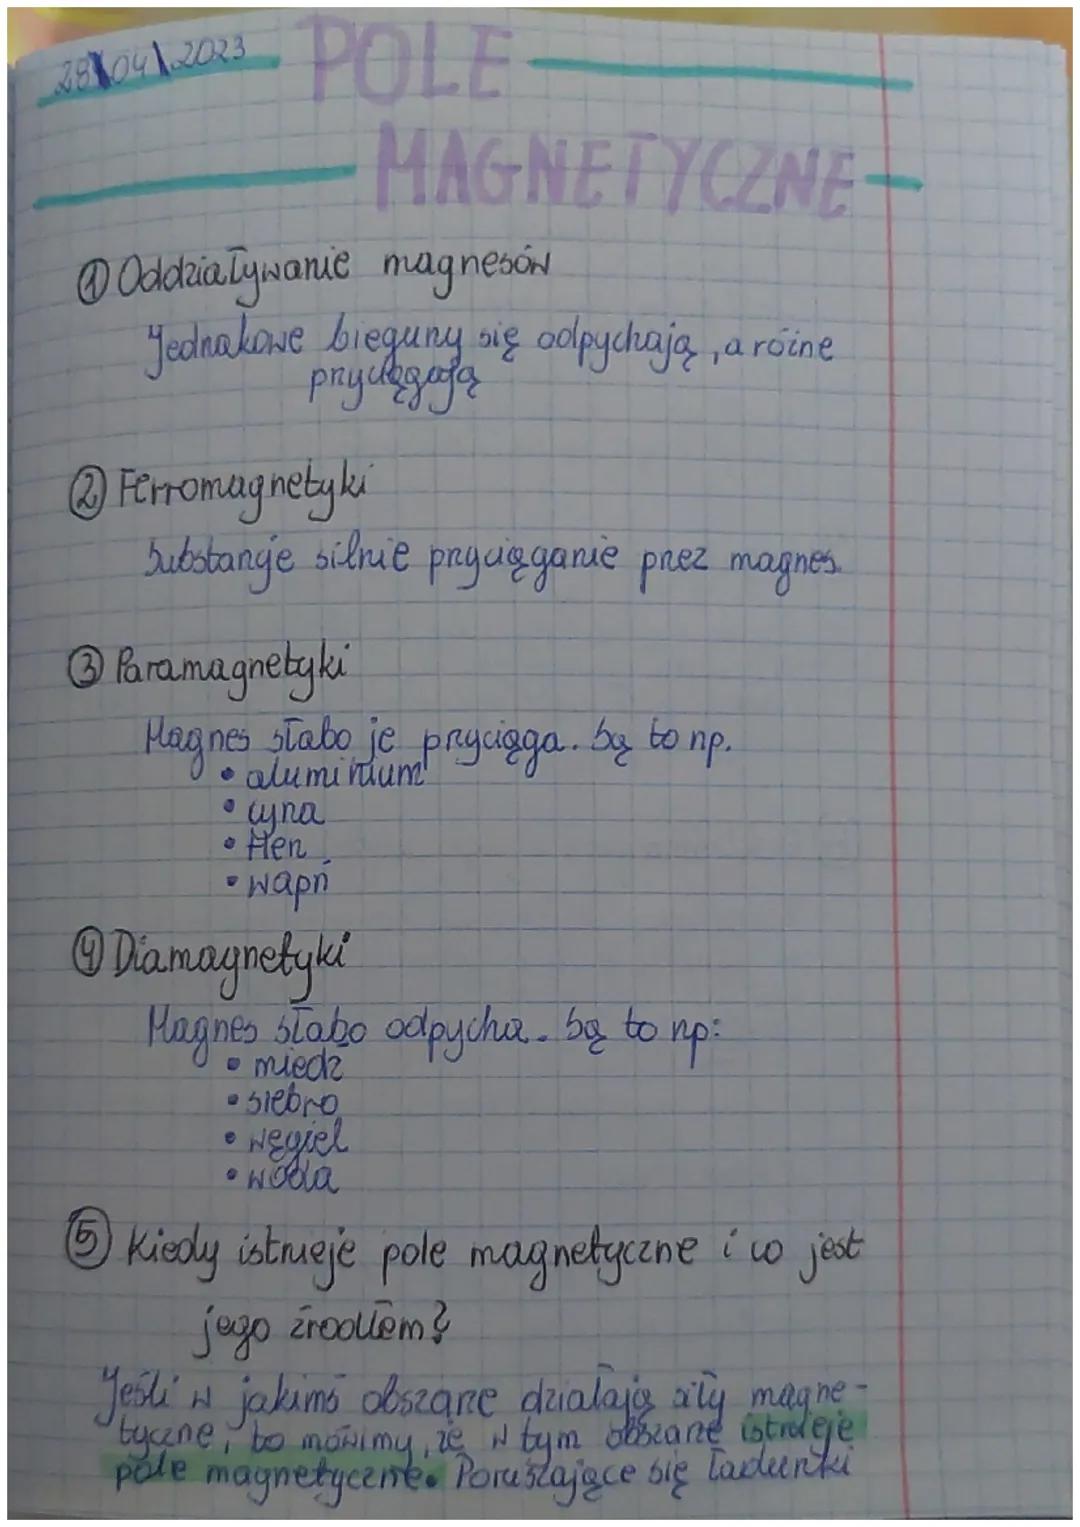 28\04\2023 POLE
MAGNETYCZNE
① Oddziaływanie magnesów
Jednakowe bieguny się odpychają, a różne
przyciągają
② Ferromagnetyki
Substancje silnie przyciąganie przez magnes.
③ Paramagnetyki
Magnes słabo je przyciąga. Są to np.
• aluminium
• cyna
• tlen
• wapń
④ Diamagnetyki
Magnes słabo odpycha. Są to np:
• miedź
• siebro
• węgiel
• woda
⑤ Kiedy istnieje pole magnetyczne i co jest
jego źródłem?
Jeśli w jakimś obszarze działają siły magne-
tyczne, to mówimy, że w tym obszarze istnieje
pole magnetyczne. Poruszające się ładunki